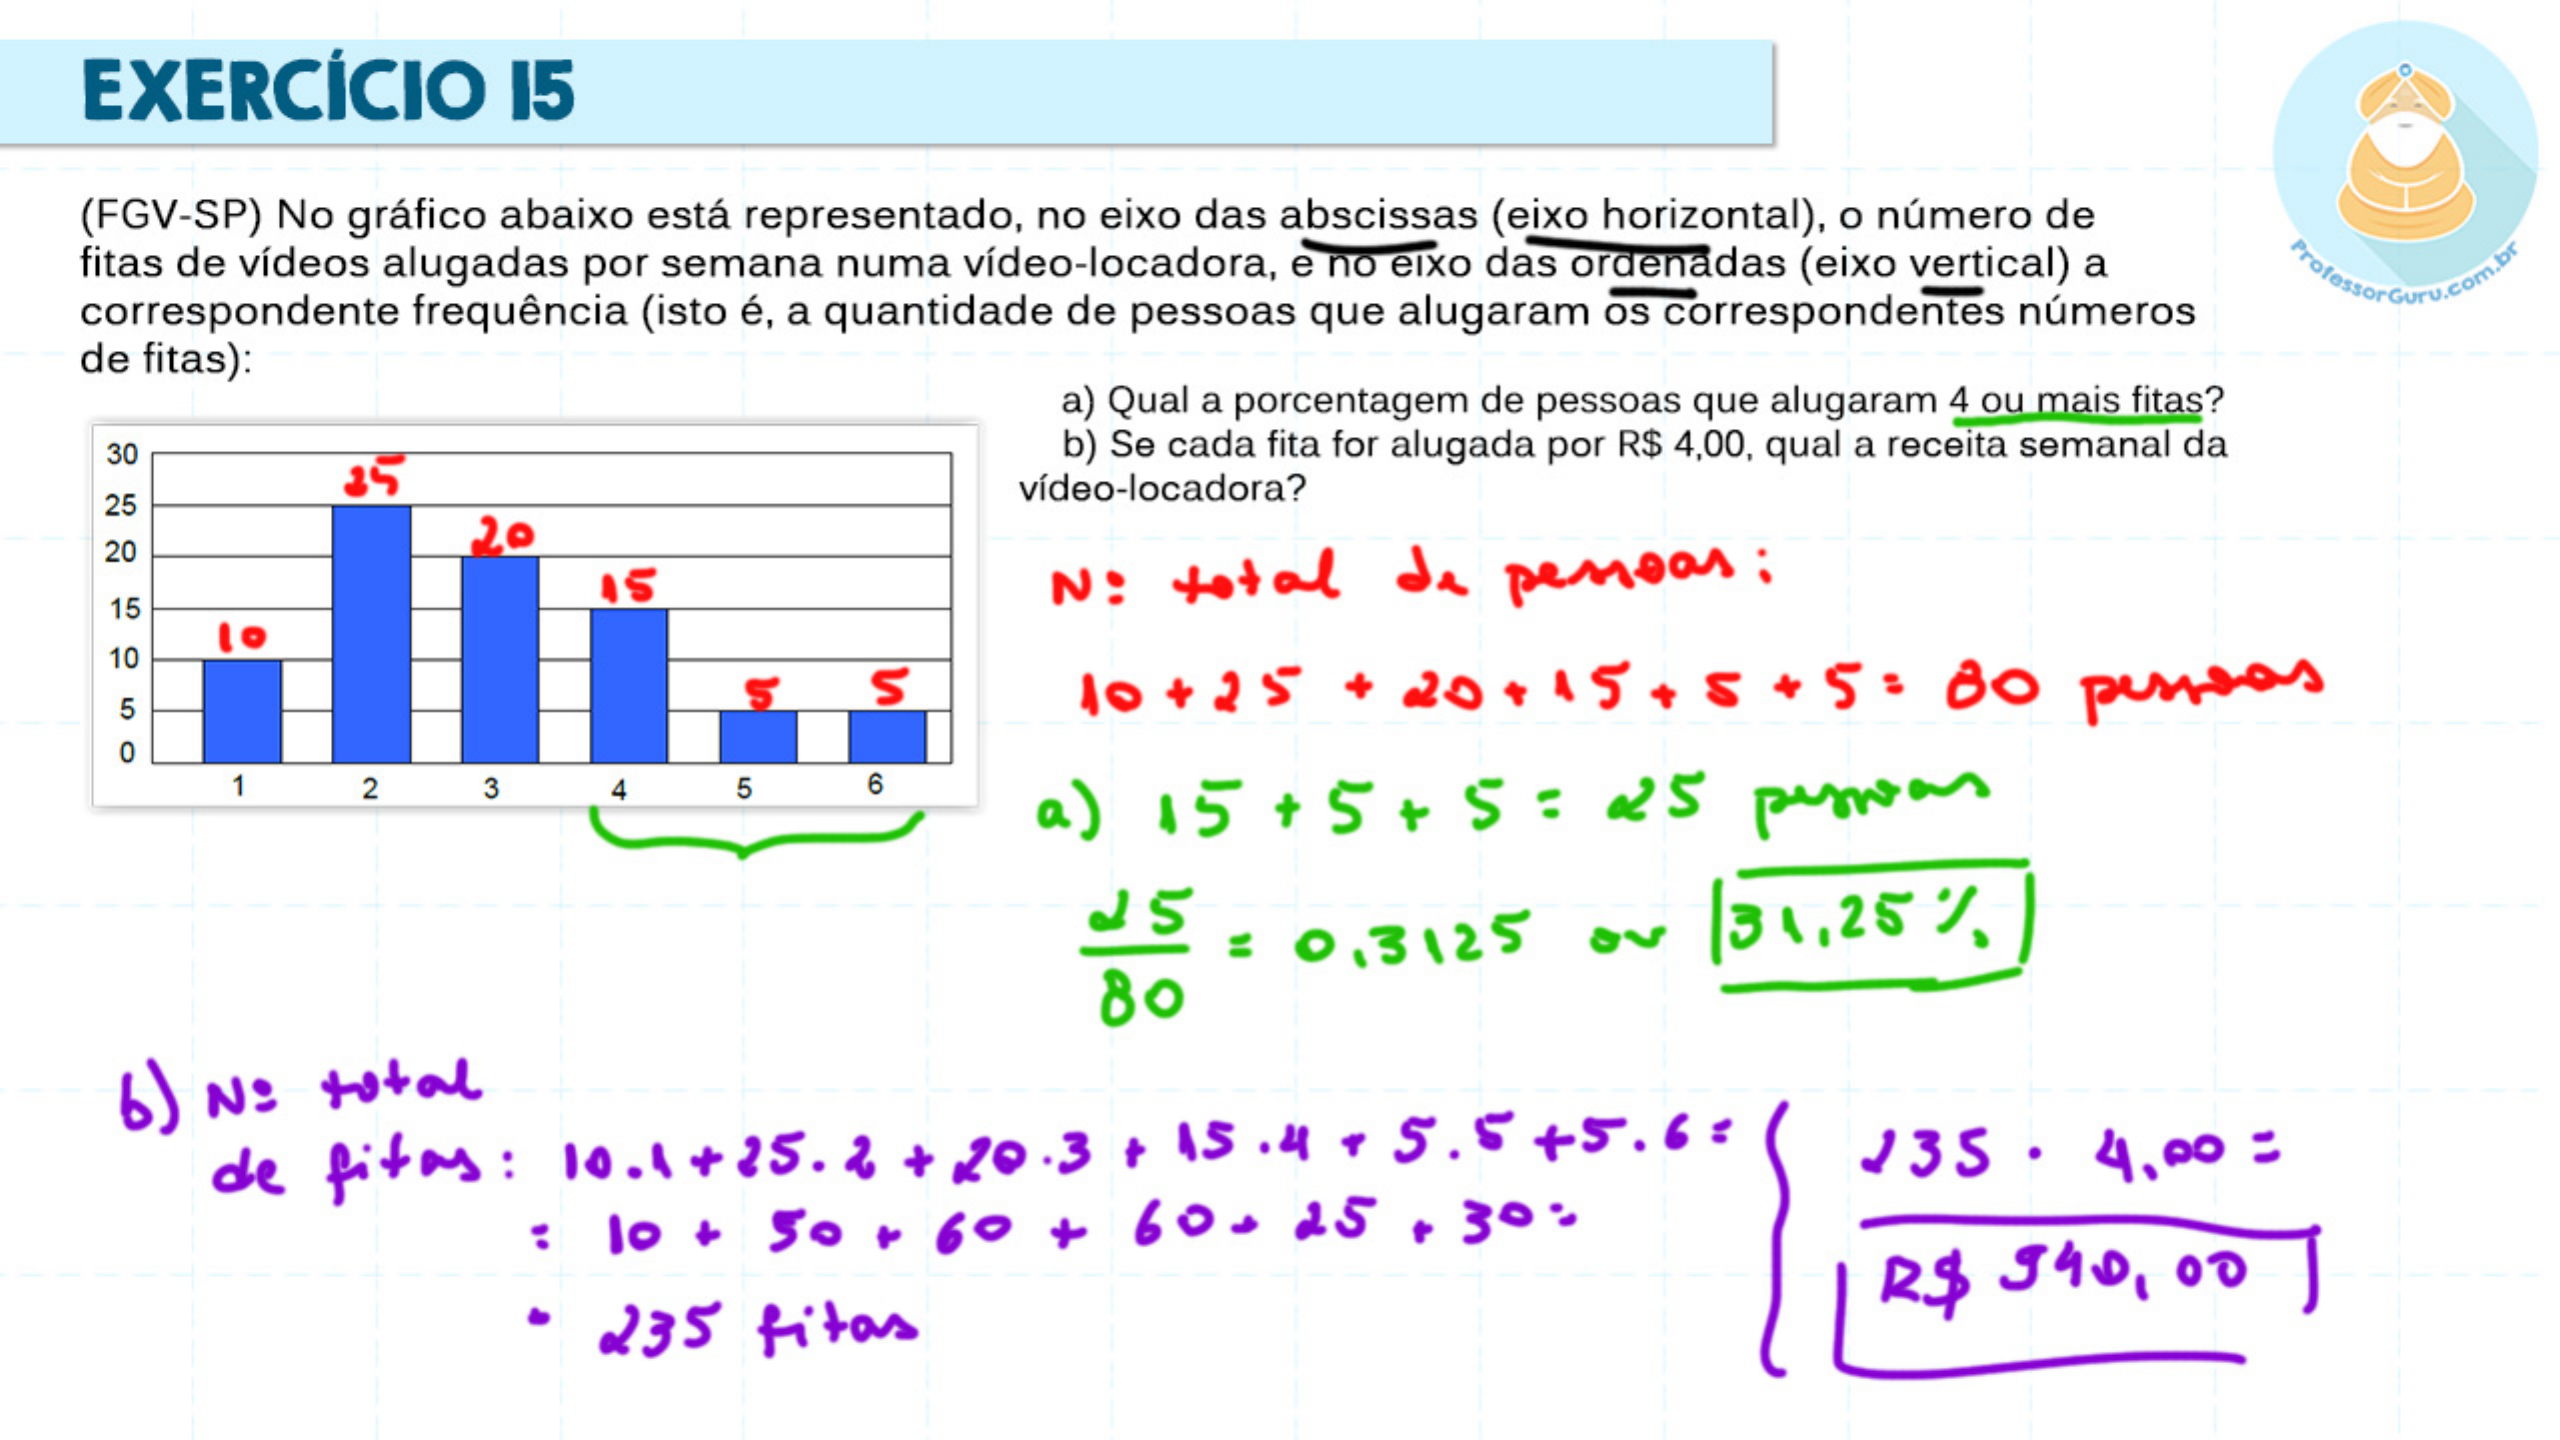 EXERCÍCIO 15
ProfessorGuru.com.br
(FGV-SP) No gráfico abaixo está representado, no eixo das abscissas (eixo horizontal), o número de
fitas de vídeos alugadas por semana numa vídeo-locadora, e no eixo das ordenadas (eixo vertical) a
correspondente frequência (isto é, a quantidade de pessoas que alugaram os correspondentes números
de fitas):
a) Qual a porcentagem de pessoas que alugaram 4 ou mais fitas?
b) Se cada fita for alugada por R$ 4,00, qual a receita semanal da
vídeo-locadora?
30
25
20
15
10
5
0
10
25
20
15
5
5
1 2 3 4 5 6
Nº total de pessoas:
10 + 25 + 20 + 15 + 5 + 5 = 80 pessoas
a) 15 + 5 + 5 = 25 pessoas
25
80
= 0,3125 ou 31,25%
b) Nº total
de fitas: 10.1 + 25.2 + 20.3 + 15.4 + 5.5 + 5.6 =
= 10 + 50 + 60 + 60 + 25 + 30 =
= 235 fitas
235 . 4,00 =
R$ 940,00